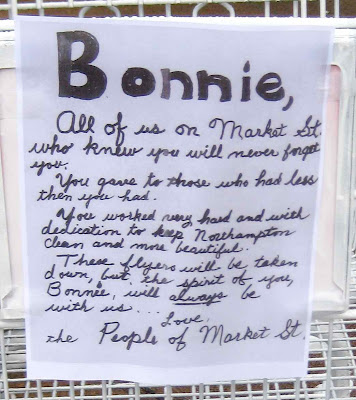 Bonnie,
All of us on Market St.
who knew you will never forget
you.
You gave to those who had less
then you had.
You worked very hard and with
dedication to keep Northampton
clean and more beautiful.
These flyers will be taken
down, but the spirit of you,
Bonnie, will always be
with us...
Love,
the People of Market St.